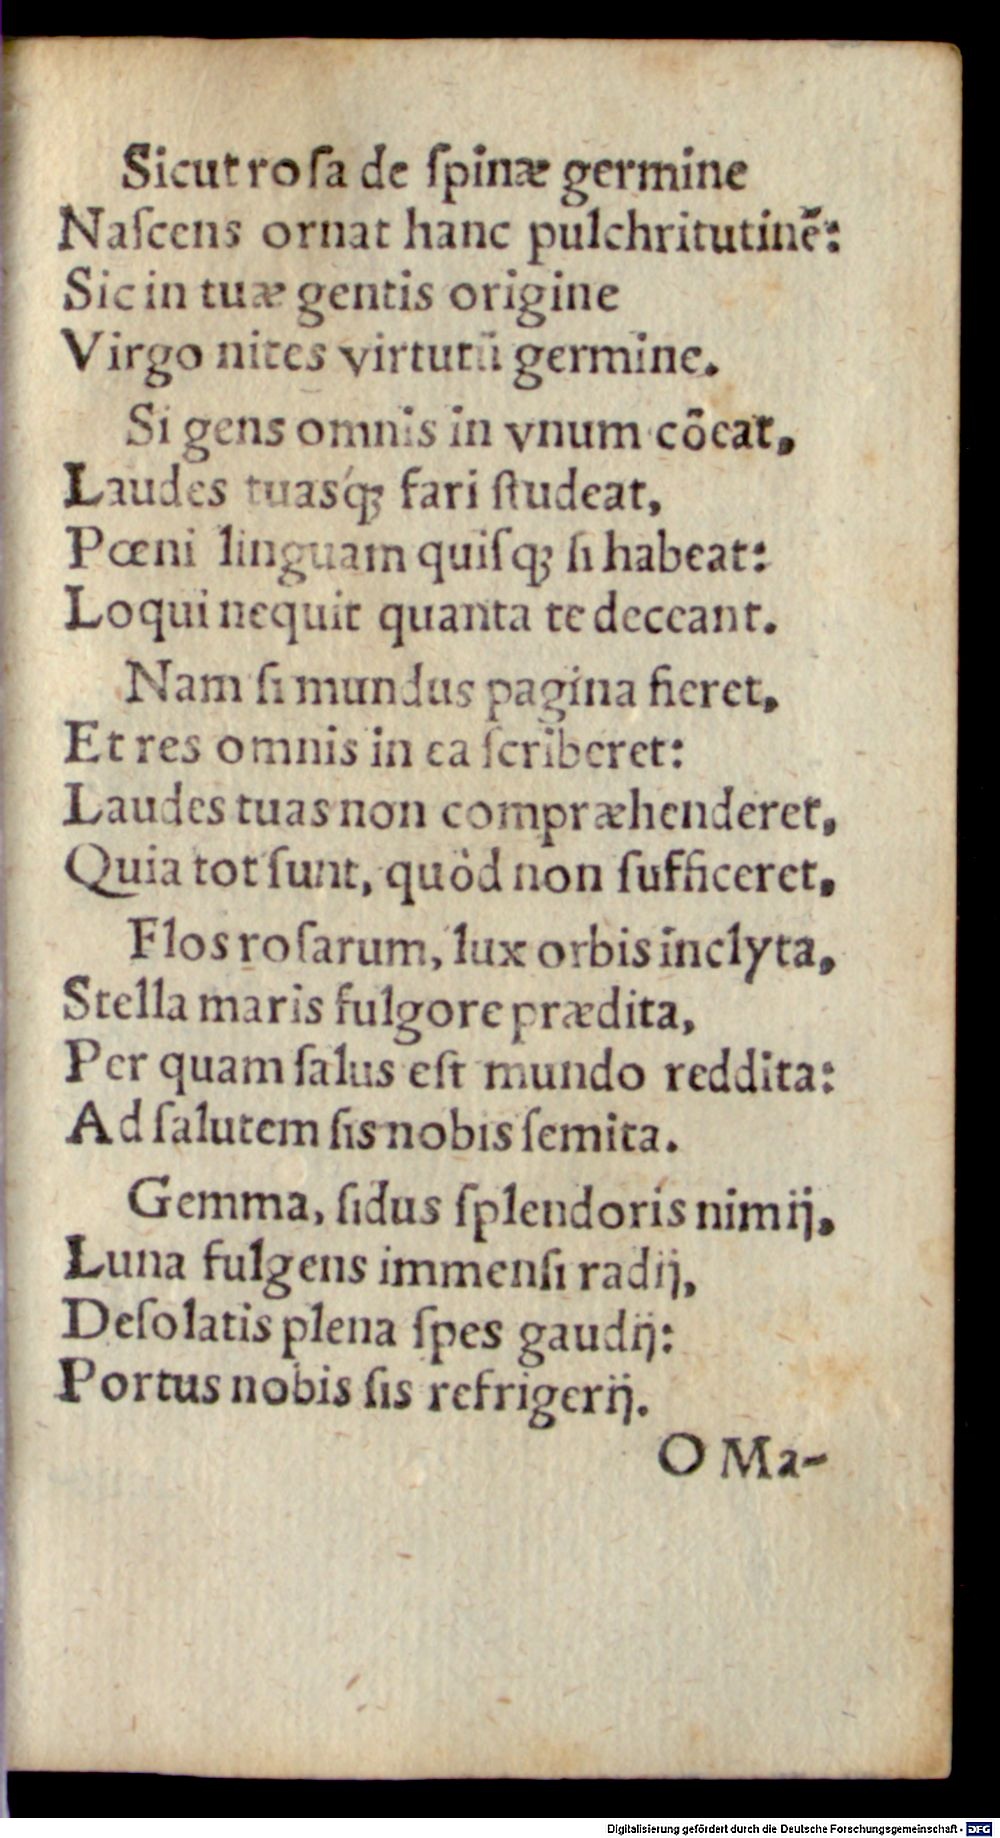 Sicut rosa de ſpinæ germine
Naſcens ornat hanc pulchritutinē:
Sic in tuæ gentis origine
Virgo nites virtutū germine.
Si gens omnis in vnum cõeat,
Laudes tuasq́; fari ſtudeat,
Pœni linguam quiſq; ſi habeat:
Loqui nequit quanta te deceant.
Nam ſi mundus pagina fieret,
Et res omnis in ea ſcriberet:
Laudes tuas non compræhenderet,
Quia tot ſunt, quòd non ſufficeret,
Flos roſarum, lux orbis inclyta,
Stella maris fulgore prædita,
Per quam ſalus eſt mundo reddita:
Ad ſalutem ſis nobis ſemita.
Gemma, ſidus ſplendoris nimij,
Luna fulgens immenſi radij,
Deſolatis plena ſpes gaudij:
Portus nobis ſis refrigerij.
O Ma-
Digitalisierung gefördert durch die Deutsche Forschungsgemeinschaft - DFG